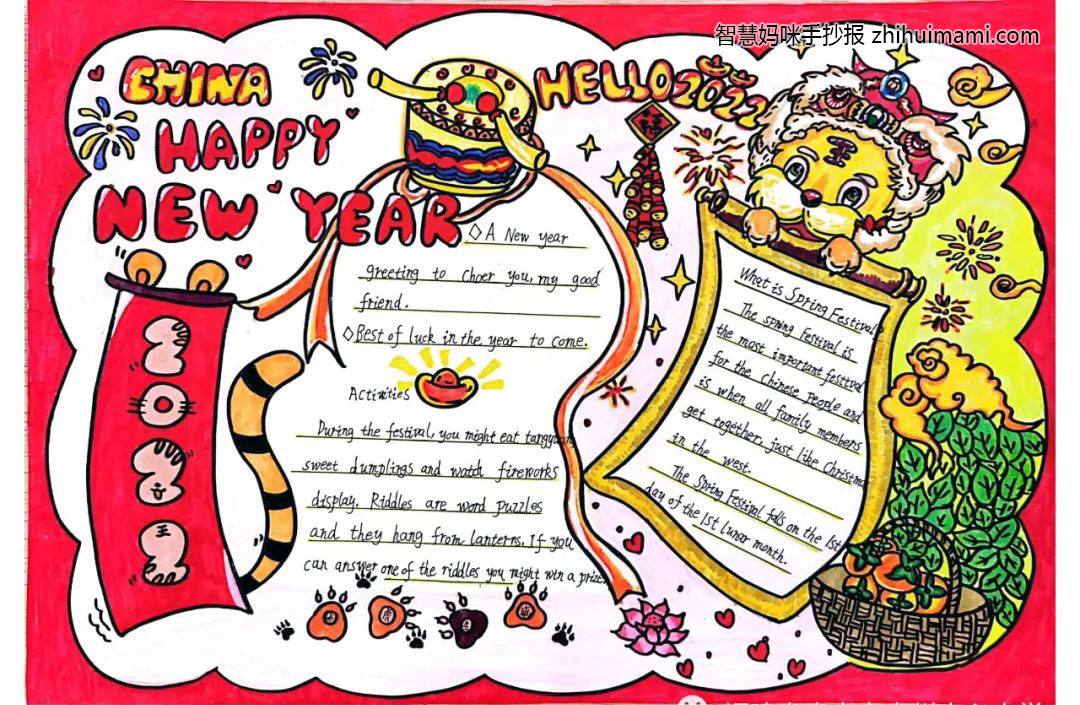 智慧妈咪手抄报 zhihuimami.com
CHINA
HAPPY
NEW YEAR
HELLO 2022
◇A New year
greeting to cheer you, my good
friend.
◇Best of luck in the year to come.
Activities
During the festival, you might eat tangyuan
sweet dumplings and watch fireworks
display. Riddles are word puzzles
and they hang from lanterns. If you
can answer one of the riddles you might win a prize.
What is Spring Festival
The spring Festival is
the most important festival
for the chinese people and
is when all family members
get together, just like Christmas
in the west.
The Spring Festival falls on the 1st
day of the 1st lunar month.
2022
王